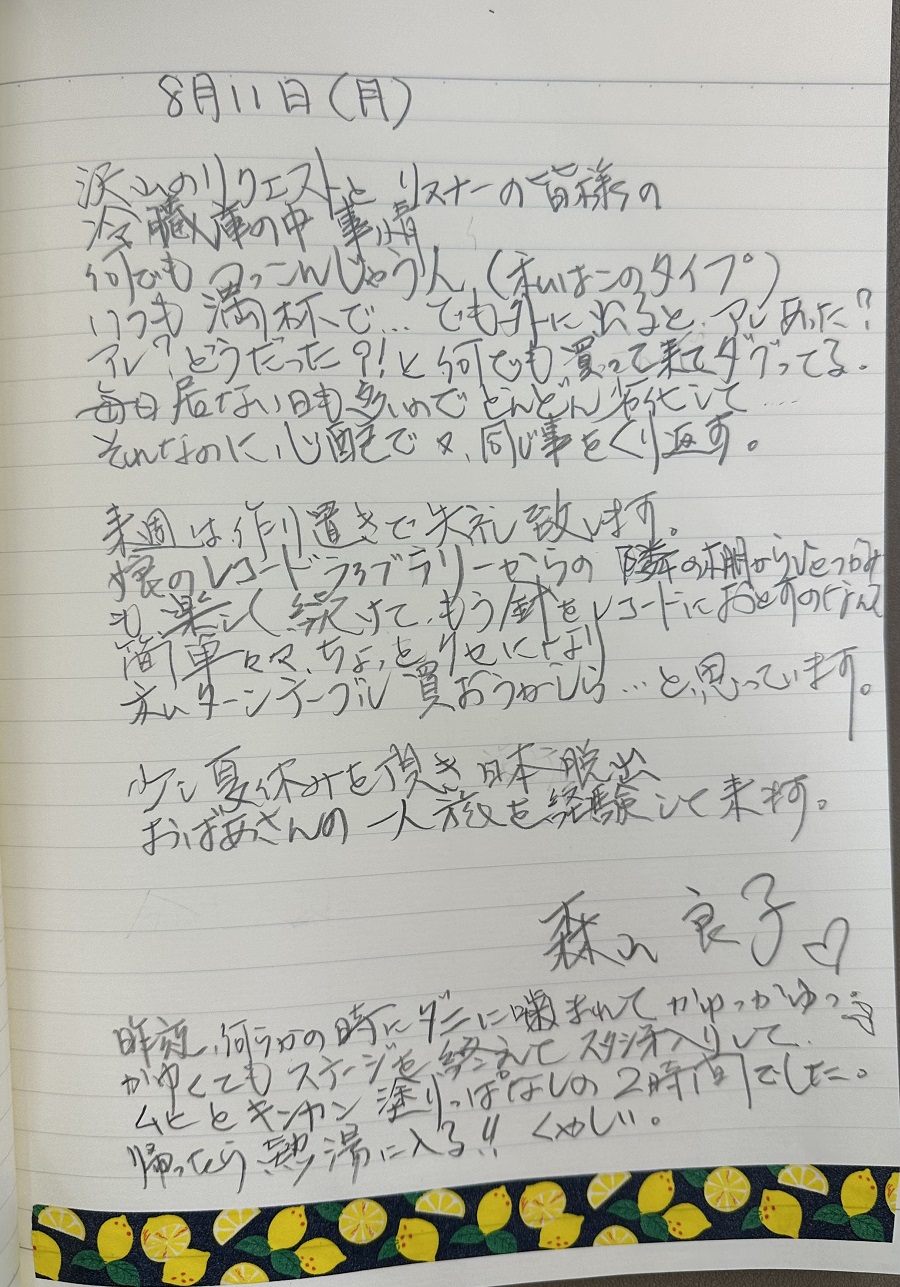 8月11日(月)
沢山のリクエストと リスナーの皆様の
冷蔵庫の中 事情
何でも つっこんじゃう人 (私はこのタイプ)
いつも 満杯で... でも外に出ると、アレあった?
アレ?どうだった?!と何でも買って来てダブってる。
毎日居ない日も多いのでどんどん劣化して...
それなのに、心配で又、同じ事をくり返す。
来週は作り置きで失礼致します。
娘のレコードライブラリーからの 隣の棚からひとつかみ
も楽しく続けて、もう針をレコードにおとすのなんて
簡単々々、ちょっとクセになり
私、ターンテーブル買おうかしら...と思っています。
少し夏休みを頂き 日本脱出
おばあさんの一人旅を経験して来ます。
森山良子♡
昨夜、何かの時にダニに噛まれて かゆっかゆっ
かゆくてもステージを終えて スタジオ入りして、
ムヒとキンカン 塗りっぱなしの2時間でした。
帰ったら熱湯に入る!! くやしい。